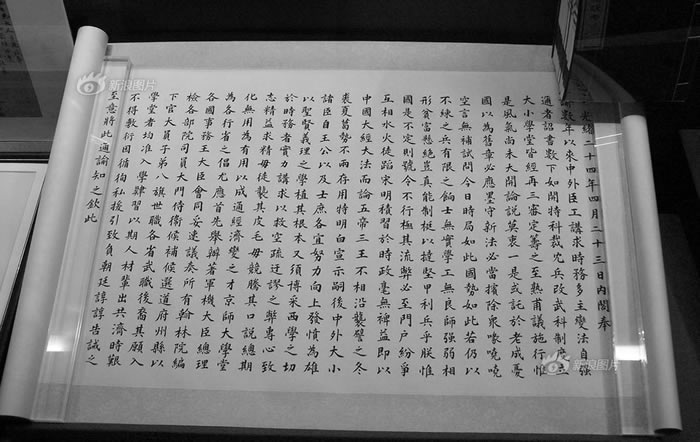 光緒二十四年四月二十三日內閣奉
諭數年以來中外臣工講求時務多主變法自強
通者詔書數下如開特科裁冗兵改武科制度立
大小學堂皆經再三審定籌之至熟甫議施行惟
是風氣尚未大開論說莫衷一是或託於老成憂
國以為舊章必應墨守新法必當擯除眾喙嘵嘵
空言無補試問今日時局如此國勢如此若仍以
不練之兵有限之餉士無實學工無良師強弱相
形貧富懸絕豈真能制梃以撻堅甲利兵乎朕惟
國是不定則號令不行極其流弊必至門戶紛爭
互相水火徒蹈宋明積習於時政毫無裨益即以
中國大經大法而論五帝三王不相沿襲譬之冬
裘夏葛勢不兩存用特明白宣示嗣後中外大小
諸臣自王公以及士庶各宜努力向上發憤為雄
以聖賢義理之學植其根本又須博采西學之切
於時務者實力講求以救空疏迂謬之弊專心致
志精益求精毋徒襲其皮毛毋競騰其口說總期
化無用為有用以成通經濟變之才京師大學堂
為各行省之倡尤應首先舉辦著軍機大臣總理
各國事務王大臣會同妥速議奏所有翰林院編
檢各部院司員大門侍衛候補候選道府州縣以
下官大員子第八旗世職各省武職後裔其願入
學堂者均准入學肄習以期人材輩出共濟時艱
不得敷衍因循徇私援引致負朝廷諄諄告誡之
至意將此通諭知之欽此
新浪图片
新浪图片